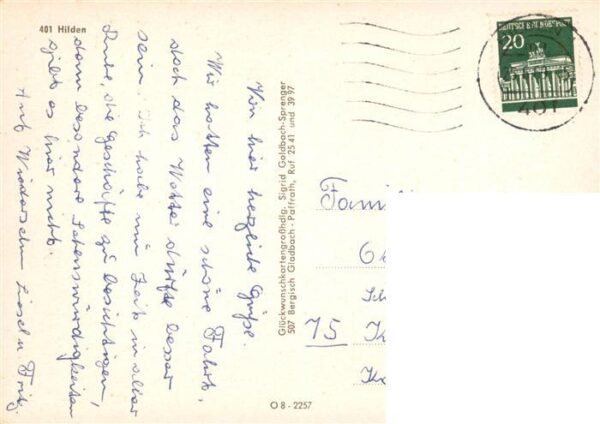 401 Hilden
Von hier herzliche Grüße.
Wir hatten eine schöne Fahrt,
doch das Wetter dürfte besser
sein. Ich habe nun Zeit in aller
Ruhe, die Geschäfte zu besichtigen,
denn besondere Sehenswürdigkeiten
gibt es hier nicht.
Auf Wiedersehn Liesel u. Fritz.
Glückwunschkartengroßhdlg. Sigrid Goldbach-Sprenger
507 Bergisch Gladbach - Paffrath, Ruf 25 41 und 39 97
O 8 - 2257
DEUTSCHE BUNDESPOST
20
401
Famili
75